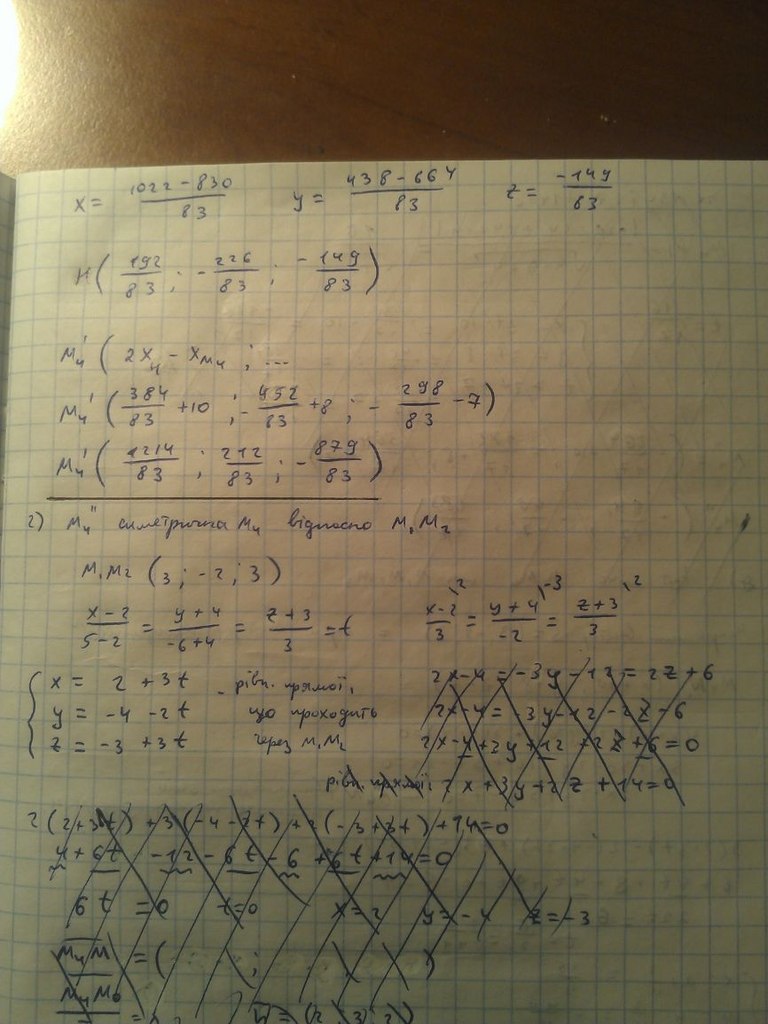 x = (1022 - 830)/83   y = (438 - 664)/83   z = -149/83
H(192/83 ; -226/83 ; -149/83)
M₄' (2x_H - x_M₄ ; ...
M₄' (384/83 + 10 ; -452/83 + 8 ; -298/83 - 7)
M₄' (1214/83 ; 212/83 ; -879/83)
2) M₄'' симетрична M₄ відносно M₁M₂
M₁M₂ (3 ; -2 ; 3)
(x-2)/(5-2) = (y+4)/(-6+4) = (z+3)/3 = t   (x-2)/3 \2 = (y+4)/-2 \-3 = (z+3)/3 \2
x = 2 + 3t - рівн. прямої,   2x-4 = -3y-12 = 2z+6
y = -4 - 2t   що проходить   2x-4 = -3y-12-2z-6
z = -3 + 3t   через M₁M₂   2x-4+3y+12+2z+6=0
рівн. прямої: 2x+3y+2z+14=0
2(2+3t) + 3(-4-2t) + 2(-3+3t) + 14=0
4+6t -12-6t-6+6t+14=0
6t = 0   t=0   x=2   y=-4   z=-3
M₄M = ( ; )
M₄M₀